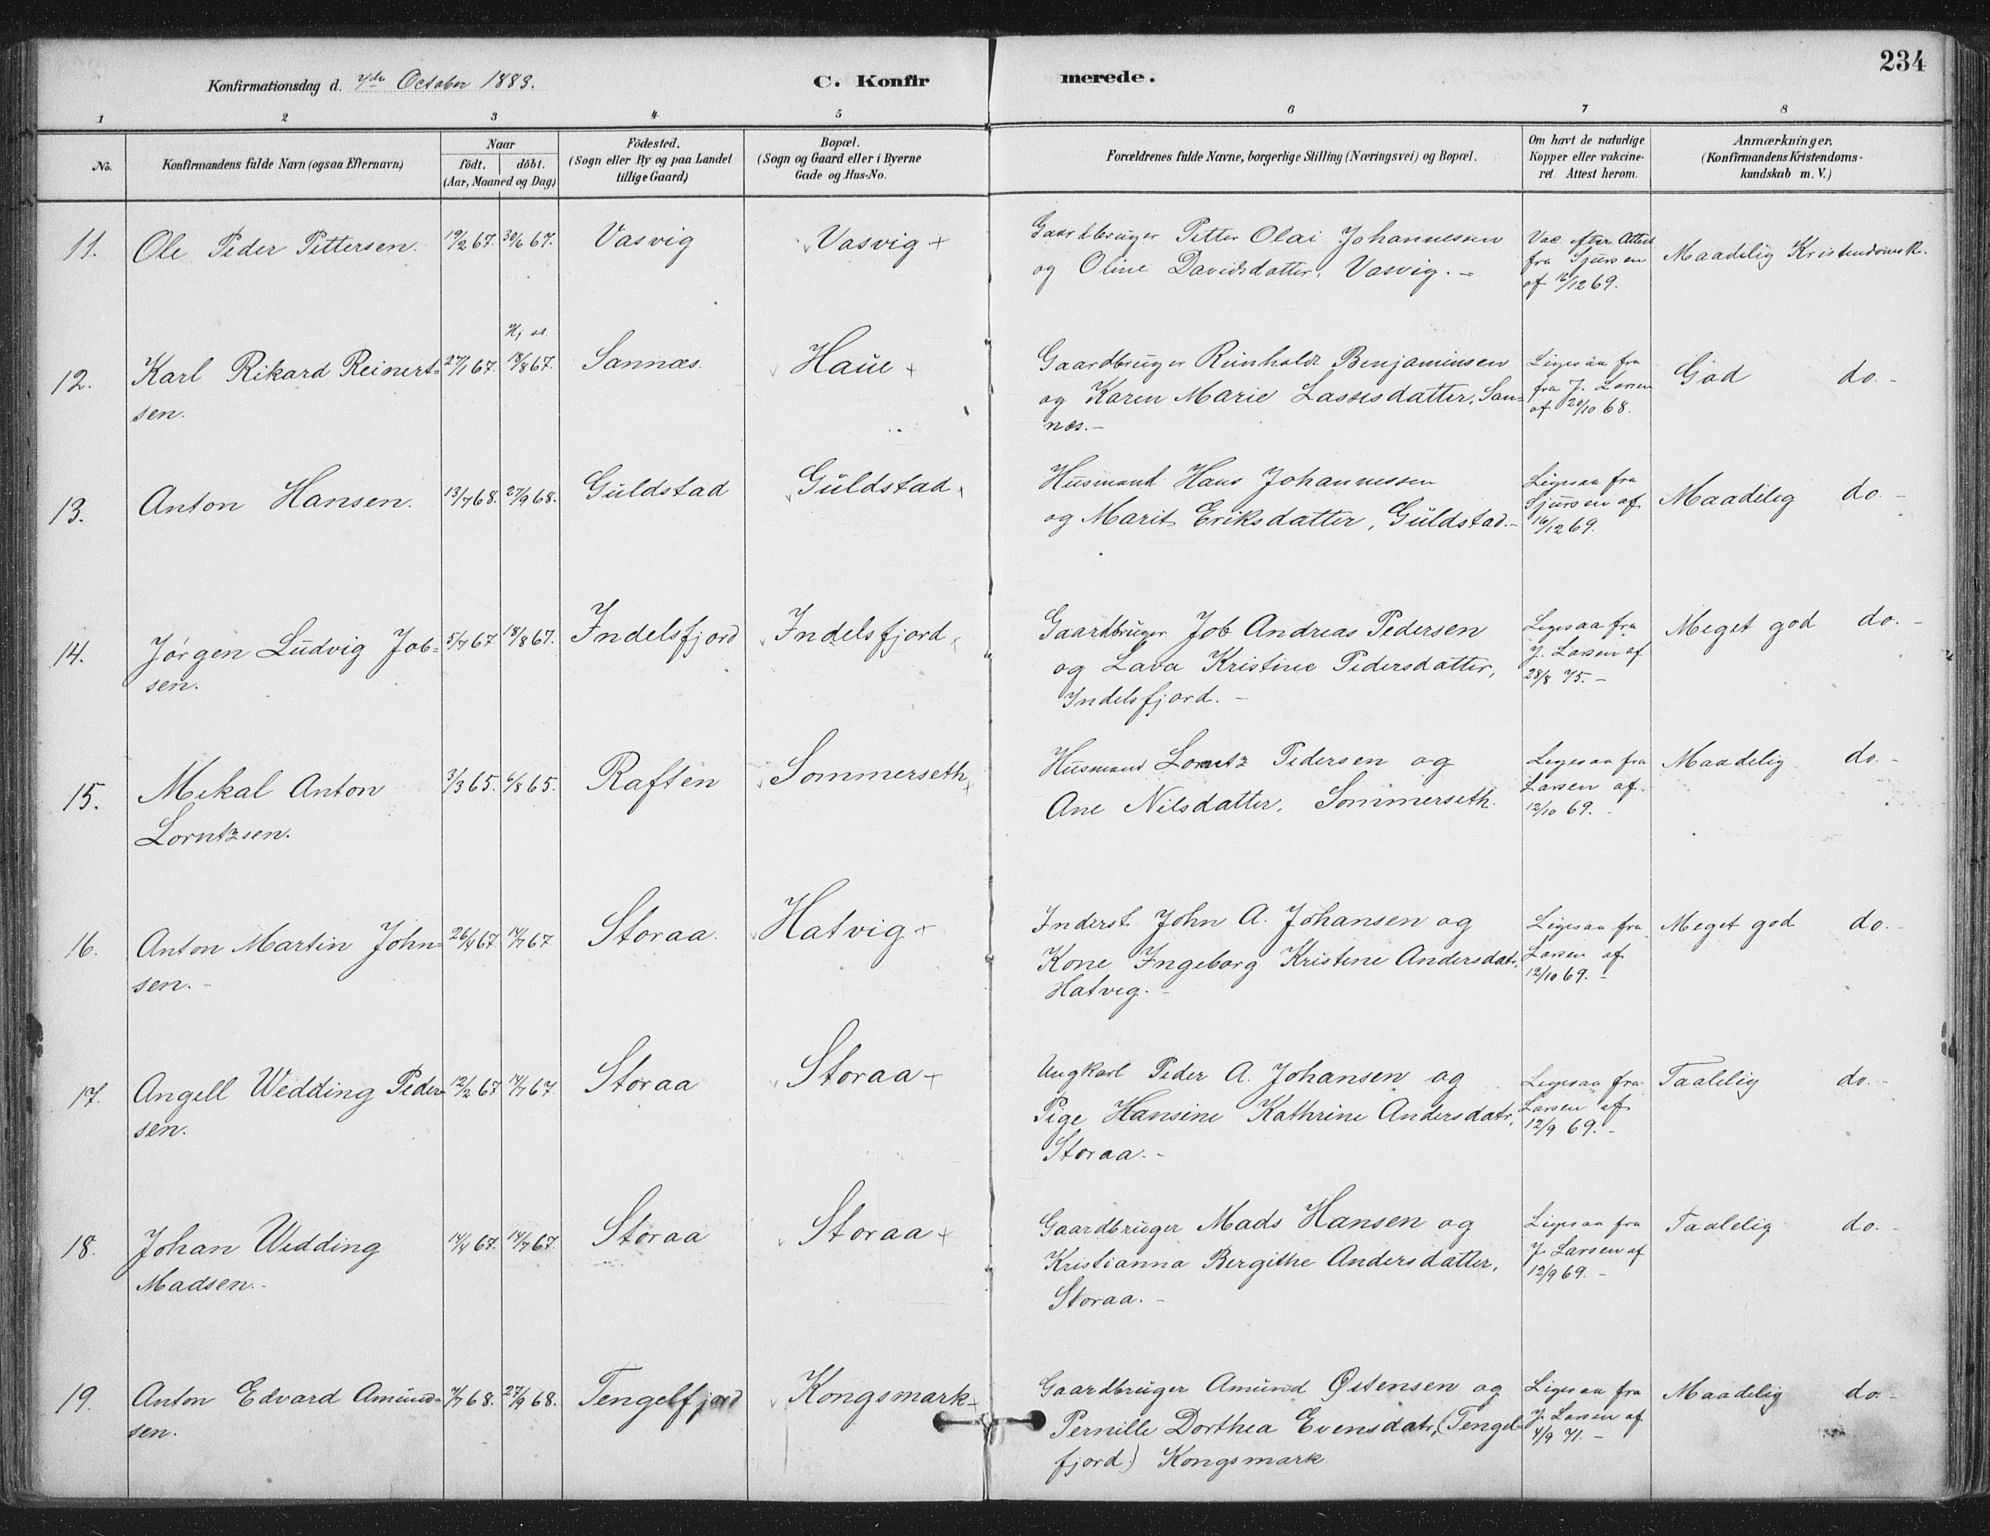 234
Konfirmationsdag d. 7de October 1883.
C. Konfirmerede.
1 2 3 4 5 6 7 8
No.
Konfirmandens fulde Navn (ogsaa Efternavn)
Naar
födt. döbt.
(Aar, Maaned og Dag)
Födested.
(Sogn eller By og paa Landet
tillige Gaard)
Bopæl.
(Sogn og Gaard eller i Byerne
Gade og Hus-No.
Forældrenes fulde Navne, borgerlige Stilling (Næringsvei) og Bopæl.
Om havt de naturlige
Kopper eller vakcine-
ret. Attest herom.
Anmærkninger.
(Konfirmandens Kristendoms-
kundskab m. V.)
11. Ole Peder Pettersen. 19/2 67. 30/6 67. Vasvig Vasvig +
Gaardbruger Petter Olai Johannessen
og Oline Davidsdatter, Vasvig. -
Vac. efter Attest
fra Sjursen
af 16/12 69.
Maadelig Kristendomsk.
12. Karl Rikard Reinert-
sen.
27/1 67. 18/8 67. Sannæs. Haue +
Gaardbruger Reinholdt Benjaminsen
og Karen Marie Lassesdatter, San-
næs. -
Ligesaa fra
fra J. Larsen
af 20/10 68.
God do. -
13. Anton Hansen. 13/7 68. 27/9 68. Guldstad Guldstad
Husmand Hans Johannessen
og Marit Eriksdatter, Guldstad. -
Ligesaa fra
Sjursen af
16/12 69.
Maadelig do. -
14. Jørgen Ludvig Job-
sen.
5/7 67 18/8 67. Indelsfjord Indelsfjord
Gaardbruger Job Andreas Pedersen
og Lava Kristine Pedersdatter,
Indelsfjord. -
Ligesaa fra
J. Larsen af
28/8 75. -
Meget god do. -
15. Mekal Anton
Lorntzsen.
3/3 65. 6/8 65. Raften Sommerseth +
Husmand Lorntz Pedersen og
Ane Nilsdatter, Sommerseth.
Ligesaa fra
Larsen af
12/10 69. -
Maadelig do. -
16. Anton Martin John-
sen. -
26/4 67. 14/7 67. Storaa. Hatvig +
Inderst. John A. Johansen og
Kone Ingeborg Kristine Andersdatr,
Hatvig. -
Ligesaa fra
Larsen af
12/10 69. -
Meget god do. -
17. Angell Wedding Peder-
sen.
12/2 67. 14/7 67. Storaa Storaa +
Ungkarl Peder A. Johansen og
Pige Hansine Kathrine Andersdatr,
Storaa. -
Ligesaa fra
Larsen af
12/9 69. -
Taalelig do. -
18. Johan Wedding
Madsen. -
14/4 67. 14/7 67. Storaa Storaa +
Gaardbruger Mads Hansen og
Kristianna Bergithe Andersdatter,
Storaa. -
Ligesaa fra
J. Larsen af
12/9 69. -
Taalelig do. -
19. Anton Edvard Amund-
sen.
7/7 68. 27/9 68. Tengelfjord Kongsmark +
Gaardbruger Amund Østensen og
Pernille Dorthea Evensdatr, (Tengel-
fjord) Kongsmark
Ligesaa fra
J. Larsen af
4/9 71. -
Maadelig do. -